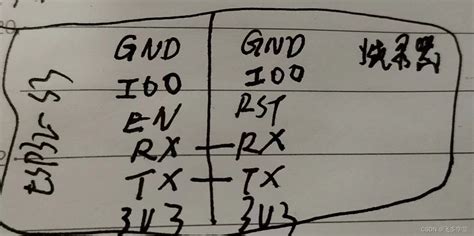 GND GND 烧录器
IO0 IO0
EN RST
ESP32-S3
RX — RX
TX — TX
3V3 3V3
CSDN @无多少言